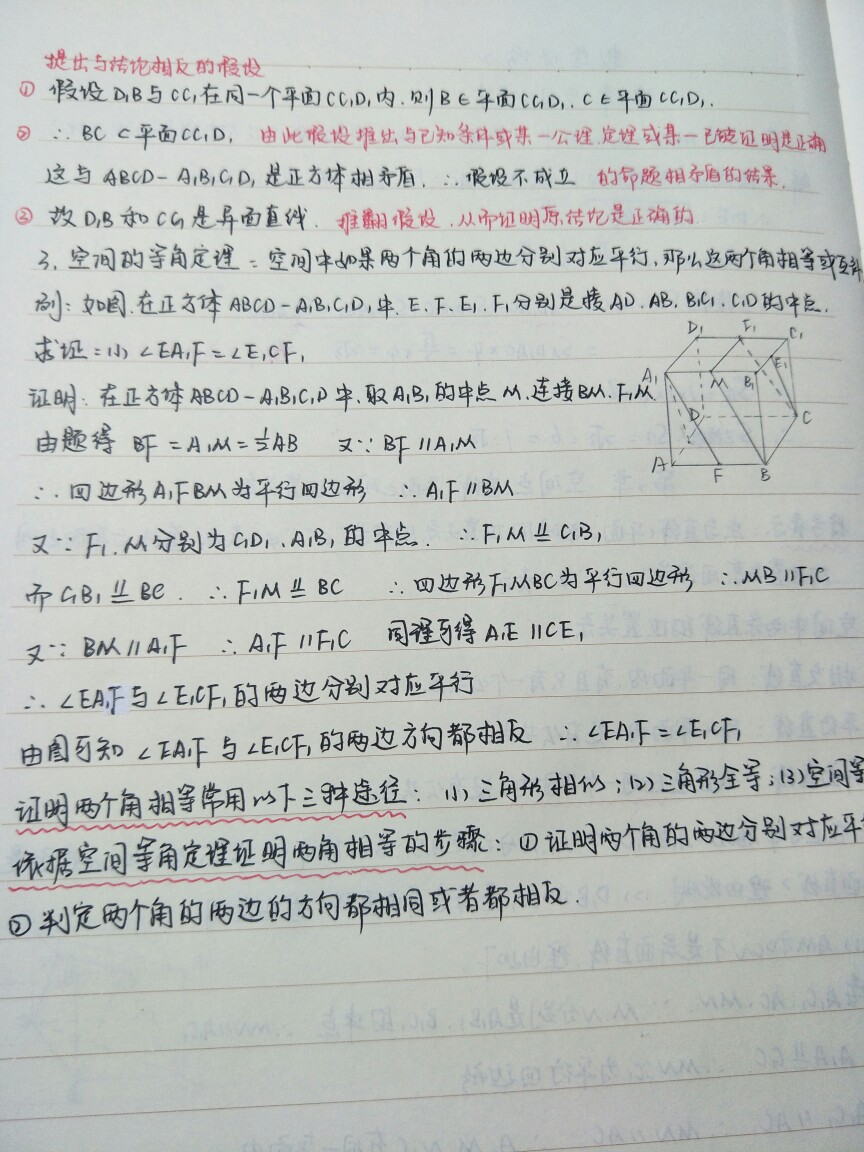 提出与结论相反的假设
① 假设D₁B与CC₁在同一个平面CC₁D₁内.则B∈平面CC₁D₁.C∈平面CC₁D₁.
② ∴BC⊂平面CC₁D₁ 由此假设推出与已知条件或某一公理.定理或某一已被证明是正确
这与ABCD-A₁B₁C₁D₁是正方体相矛盾.∴假设不成立 的命题相矛盾的结果.
③ 故D₁B和CC₁是异面直线. 推翻假设.从而证明原结论是正确的
3.空间的等角定理:空间中如果两个角的两边分别对应平行,那么这两个角相等或互补
例:如图.在正方体ABCD-A₁B₁C₁D₁中.E.F.E₁.F₁分别是棱AD.AB.B₁C₁.C₁D₁的中点.
求证:(1)∠EA₁F=∠E₁CF₁
证明:在正方体ABCD-A₁B₁C₁D中.取A₁B₁的中点M.连接BM.F₁M.
由题得 BF=A₁M=½AB 又∵BF∥A₁M
∴四边形A₁FBM为平行四边形 ∴A₁F∥BM
又∵F₁.M分别为C₁D₁.A₁B₁的中点.∴F₁M⫫C₁B₁
而C₁B₁⫫BC.∴F₁M⫫BC ∴四边形F₁MBC为平行四边形 ∴MB∥F₁C
又∵BM∥A₁F ∴A₁F∥F₁C 同理可得A₁E∥CE₁
∴∠EA₁F与∠E₁CF₁的两边分别对应平行
由图可知∠EA₁F与∠E₁CF₁的两边方向都相反 ∴∠EA₁F=∠E₁CF₁
证明两个角相等常用以下三种途径:(1)三角形相似;(2)三角形全等;(3)空间等
依据空间等角定理证明两角相等的步骤:①证明两个角的两边分别对应平
②判定两个角的两边的方向都相同或者都相反.
D₁ F₁ C₁
A₁ M B₁ E₁
D C
A F B